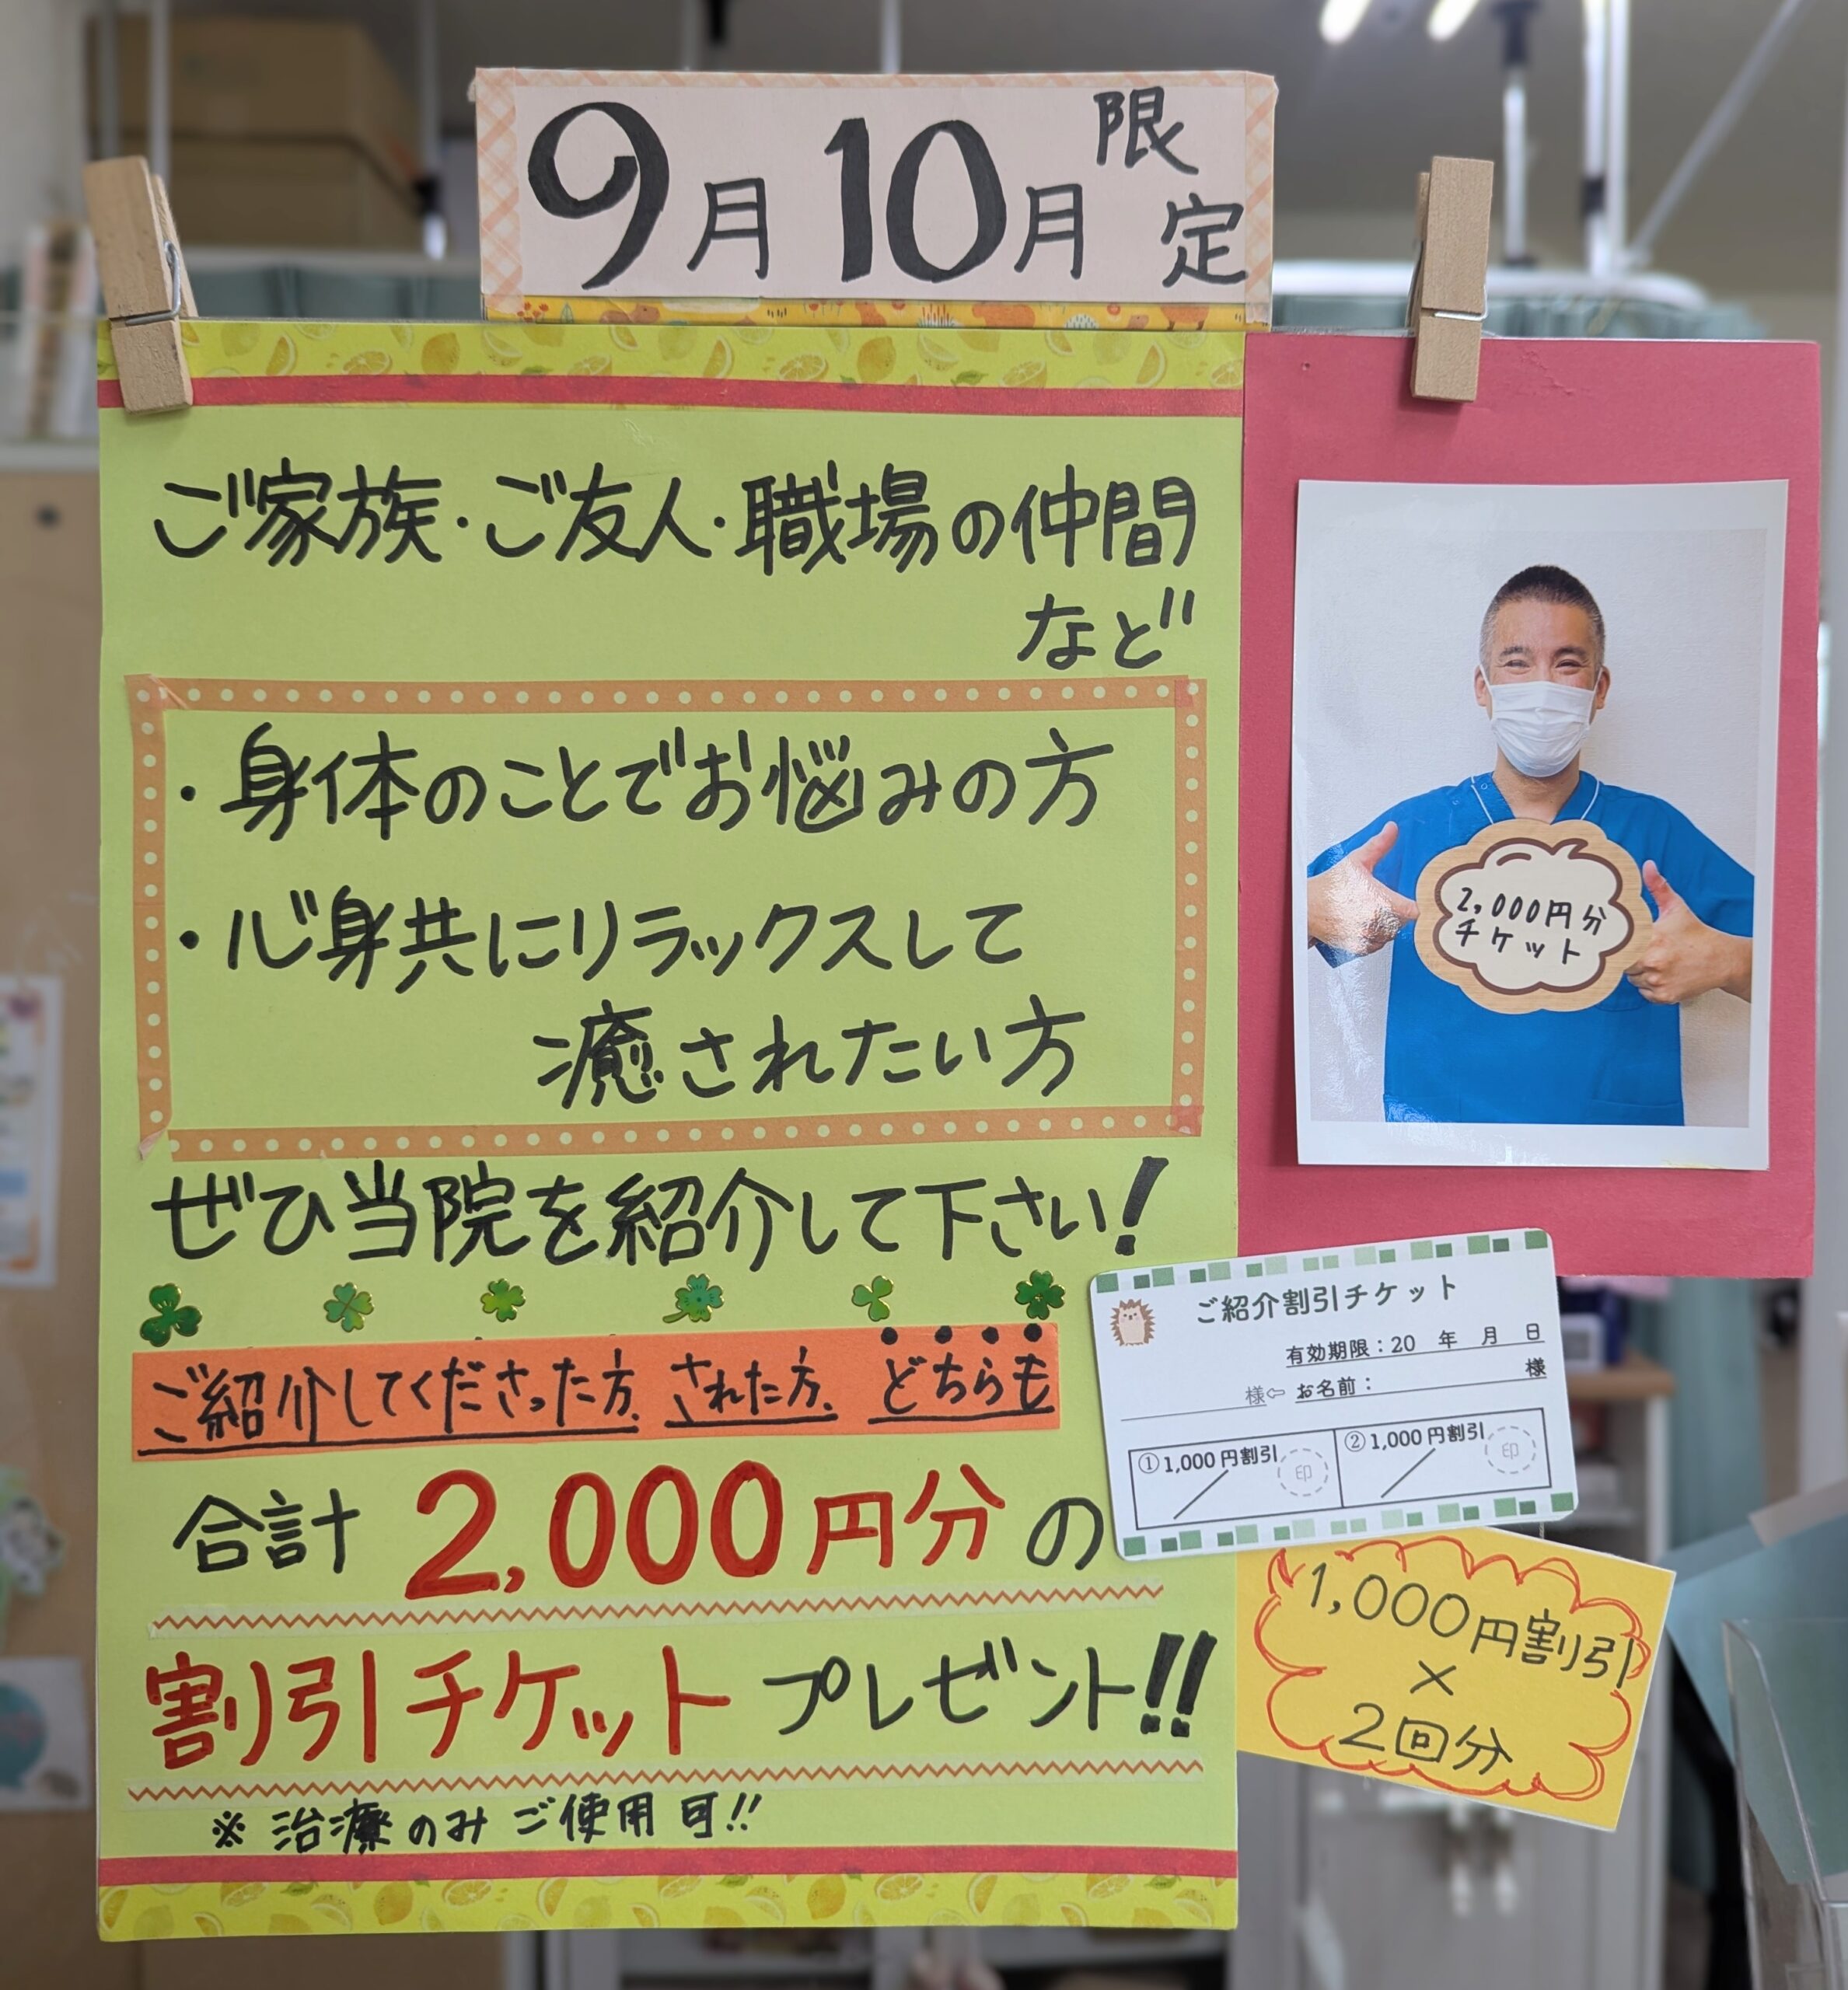 9月10月限定
ご家族・ご友人・職場の仲間
など
・身体のことでお悩みの方
・心身共にリラックスして
癒されたい方
ぜひ当院を紹介して下さい!
ご紹介してくださった方、された方、どちらも
合計2,000円分の
割引チケットプレゼント!!
※治療のみご使用可!!
2,000円分
チケット
ご紹介割引チケット
有効期限:20 年 月 日
様⇦お名前: 様
①1,000円割引 印 ②1,000円割引 印
1,000円割引
×
2回分